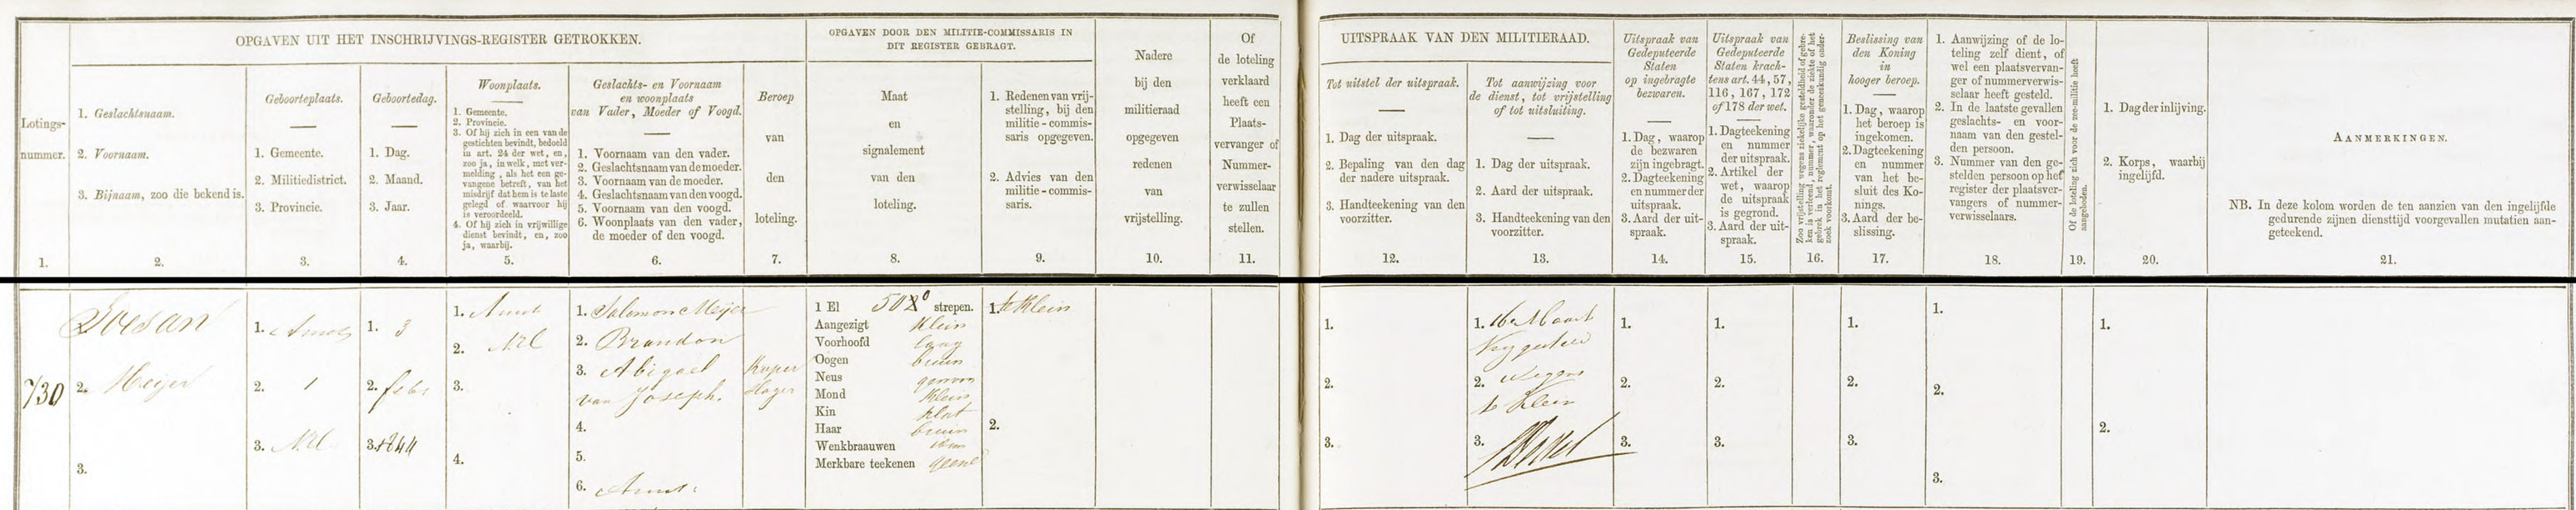 OPGAVEN UIT HET INSCHRIJVINGS-REGISTER GETROKKEN.
OPGAVEN DOOR DEN MILITIE-COMMISSARIS IN
DIT REGISTER GEBRAGT.
Lotings-
nummer.
1.
1. Geslachtsnaam.
2. Voornaam.
3. Bijnaam, zoo die bekend is.
2.
Geboorteplaats.
1. Gemeente.
2. Militiedistrict.
3. Provincie.
3.
Geboortedag.
1. Dag.
2. Maand.
3. Jaar.
4.
Woonplaats.
1. Gemeente.
2. Provincie.
3. Of hij zich in een van de
gestichten bevindt, bedoeld
in art. 24 der wet, en,
zoo ja, in welk, met ver-
melding, als het een ge-
vangene betreft, van het
misdrijf dat hem is te laste
gelegd of waarvoor hij
is veroordeeld.
4. Of hij zich in vrijwillige
dienst bevindt, en, zoo
ja, waarbij.
5.
Geslachts- en Voornaam
en woonplaats
van Vader, Moeder of Voogd.
1. Voornaam van den vader.
2. Geslachtsnaam van de moeder.
3. Voornaam van de moeder.
4. Geslachtsnaam van den voogd.
5. Voornaam van den voogd.
6. Woonplaats van den vader,
de moeder of den voogd.
6.
Beroep
van
den
loteling.
7.
Maat
en
signalement
van den
loteling.
8.
1. Redenen van vrij-
stelling, bij den
militie-commis-
saris opgegeven.
2. Advies van den
militie-commis-
saris.
9.
Nadere
bij den
militieraad
opgegeven
redenen
van
vrijstelling.
10.
Of
de loteling
verklaard
heeft een
Plaats-
vervanger of
Nummer-
verwisselaar
te zullen
stellen.
11.
UITSPRAAK VAN DEN MILITIERAAD.
Tot uitstel der uitspraak.
1. Dag der uitspraak.
2. Bepaling van den dag
der nadere uitspraak.
3. Handteekening van den
voorzitter.
12.
Tot aanwijzing voor
de dienst, tot vrijstelling
of tot uitsluiting.
1. Dag der uitspraak.
2. Aard der uitspraak.
3. Handteekening van den
voorzitter.
13.
Uitspraak van
Gedeputeerde
Staten
op ingebragte
bezwaren.
1. Dag, waarop
de bezwaren
zijn ingebragt.
2. Dagteekening
en nummer der
uitspraak.
3. Aard der uit-
spraak.
14.
Uitspraak van
Gedeputeerde
Staten krach-
tens art. 44, 57,
116, 167, 172
of 178 der wet.
1. Dagteekening
en nummer
der uitspraak.
2. Artikel der
wet, waarop
de uitspraak
is gegrond.
3. Aard der uit-
spraak.
15.
Zoo vrijstelling wegens ziekelijke gesteldheid of gebre-
ken is verleend, nummer, waaronder de ziekte of het
gebrek in het reglement op het geneeskundig onder-
zoek voorkomt.
16.
Beslissing van
den Koning
in
hooger beroep.
1. Dag, waarop
het beroep is
ingekomen.
2. Dagteekening
en nummer
van het be-
sluit des Ko-
nings.
3. Aard der be-
slissing.
17.
1. Aanwijzing of de lo-
teling zelf dient, of
wel een plaatsvervan-
ger of nummerverwis-
selaar heeft gesteld.
2. In de laatste gevallen
geslachts- en voor-
naam van den gestel-
den persoon.
3. Nummer van den ge-
stelden persoon op het
register der plaatsver-
vangers of nummer-
verwisselaars.
18.
Of de loteling zich voor de zee-militie heeft
aangeboden.
19.
1. Dag der inlijving.
2. Korps, waarbij
ingelijfd.
20.
AANMERKINGEN.
NB. In deze kolom worden de ten aanzien van den ingelijfde
gedurende zijnen diensttijd voorgevallen mutatien aan-
geteekend.
21.
730
Soesan
2. Meijer
3.
1. Amst
2. 1
3. NH
1. 3
2. febr
3. 1844
1. Amst
2. NH
3.
4.
1. Salomon Meijer
2. Brandon
3. Abigael
van Joseph.
4.
5.
6. Amst:
Kuper
slager
1 El 50 strepen.
Aangezigt klein
Voorhoofd laag
Oogen bruin
Neus gewoon
Mond klein
Kin plat
Haar bruin
Wenkbraauwen idem
Merkbare teekenen geene
1. te Klein
2.
1.
2.
3.
1. 16 Maart
Vrijgesteld
2. wegens
te klein
3.
1.
2.
3.
1.
2.
3.
1.
2.
3.
1.
2.
3.
1.
2.